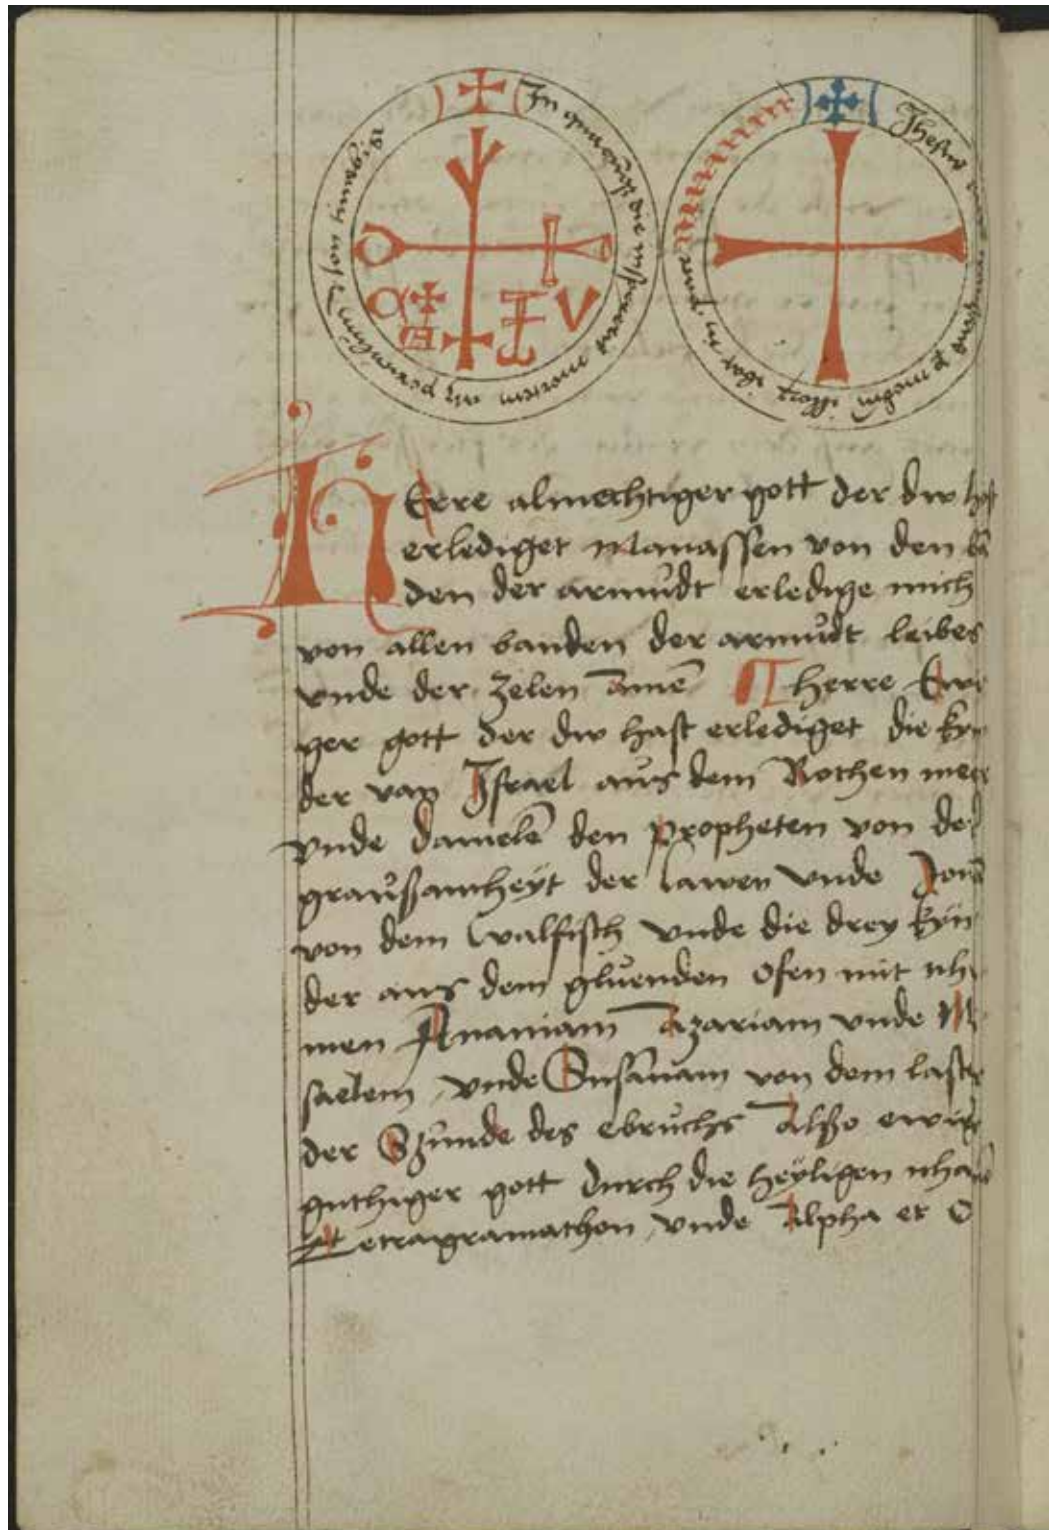 HErre almechtiger gott der dw hast
erlediget Manassen von den bā
den der armůdt erledige mich
von allen banden der armůdt leibes
vnde der zelen Amē herre Ewi
ger gott der dw hast erlediget die kyn
der van Israel aůs dem Rothen meer
vnde danielē den propheten von der
graůßamheÿt der lawen vnde Jonā
von dem walfisch vnde die drey kÿn
der aus dem glůenden ofen mit nha
men Ananiam Azariam vnde Mi
saelem, vnde Susannam von dem laster
der Szůnde des ebrůchs Alßo ewiger
guthiger gott durch die heÿligen nhamē
Tetragramathon, vnde Alpha et O